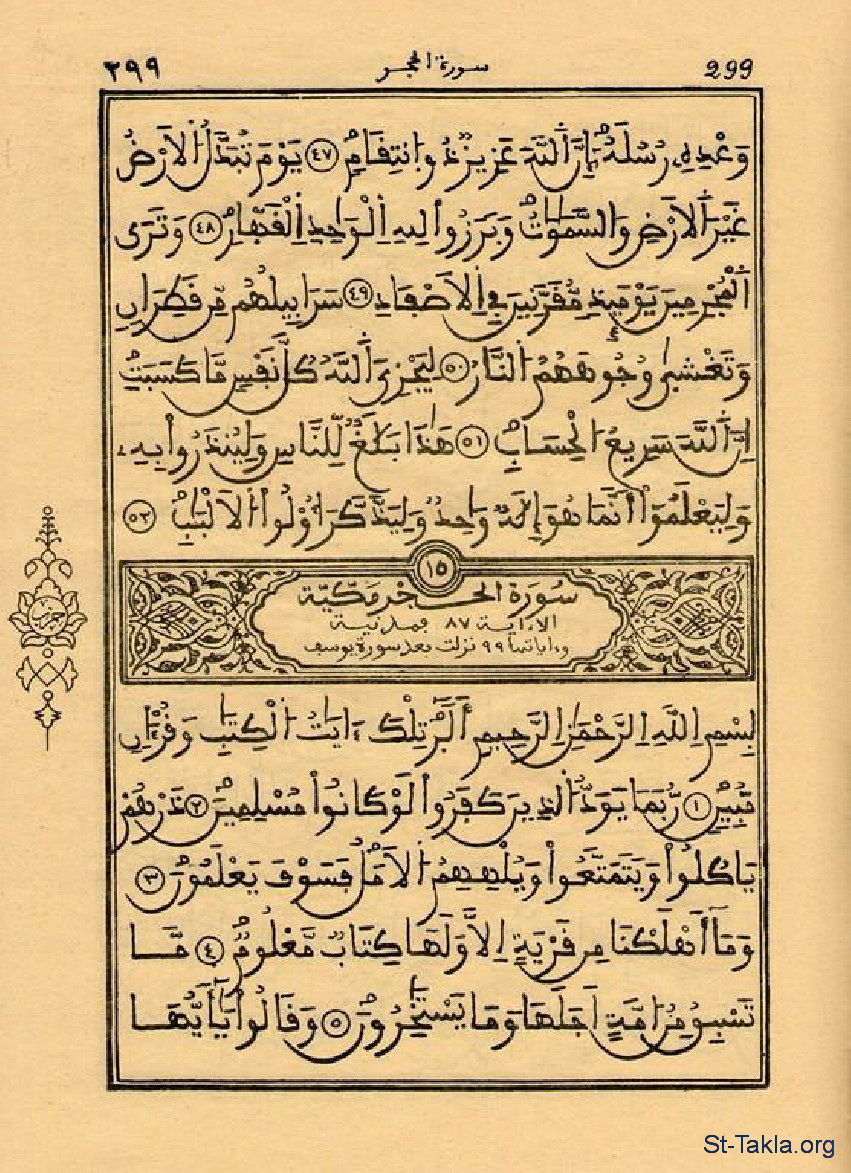 299 سورة الحجر ٢٩٩
وَعْدِهِ رُسُلَهُ إِنَّ اَللَّهَ عَزِيزٌ ذُو اُنتِقَامٍ ٤٧ يَوْمَ تُبَدَّلُ اُلَارْضُ
غَيْرَ اَلَارْضِ وَالسَّمَٰوَٰتُ وَبَرَزُواْ لِلهِ اِلْوَٰحِدِ اِلْقَهَّارِ ٤٨ وَتَرَى
اَلْمُجْرِمِينَ يَوْمَئِذٍ مُّقَرَّنِينَ فِي اِلَاصْفَادِ ٤٩ سَرَابِيلُهُم مِّن قَطِرَانٍ
وَتَغْشَىٰ وُجُوهَهُمُ اُلنَّارُ ٥٠ لِيَجْزِيَ اَللَّهُ كُلَّ نَفْسٍ مَّا كَسَبَتِ
اِنَّ اَللَّهَ سَرِيعُ اُلْحِسَابِ ٥١ هَٰذَا بَلَٰغٌ لِّلنَّاسِ وَلِيُنذَرُواْ بِهِ
وَلِيَعْلَمُوٓاْ أَنَّمَا هُوَ إِلَٰهٌ وَٰحِدٌ وَلِيَذَّكَّرَ أُوْلُواْ اُلَالْبَٰبِ ٥٢
١٥
سُورَةُ الحِجْرِ مَكِّيَّة
الا ءاية ٨٧ فمدنية
وءاياتها ٩٩ نزلت بعد سورة يوسف
بِسْمِ اِللَّهِ اِلرَّحْمَٰنِ اِلرَّحِيمِ أَلَٓرَ تِلْكَ ءَايَٰتُ اُلْكِتَٰبِ وَقُرْءَانٍ
مُّبِينٍ ١ رُّبَمَا يَوَدُّ اُلذِينَ كَفَرُواْ لَوْ كَانُواْ مُسْلِمِينَ ٢ ذَرْهُمْ
يَاكُلُواْ وَيَتَمَتَّعُواْ وَيُلْهِهِمُ اُلَامَلُ فَسَوْفَ يَعْلَمُونَ ٣
وَمَآ أَهْلَكْنَا مِن قَرْيَةٍ اِلَّا وَلَهَا كِتَابٌ مَّعْلُومٌ ٤ مَّا
تَسْبِقُ مِنُ امَّةٍ اَجَلَهَا وَمَا يَسْتَٰخِرُونَ ٥ وَقَالُواْ يَٰٓأَيُّهَا
St-Takla.org